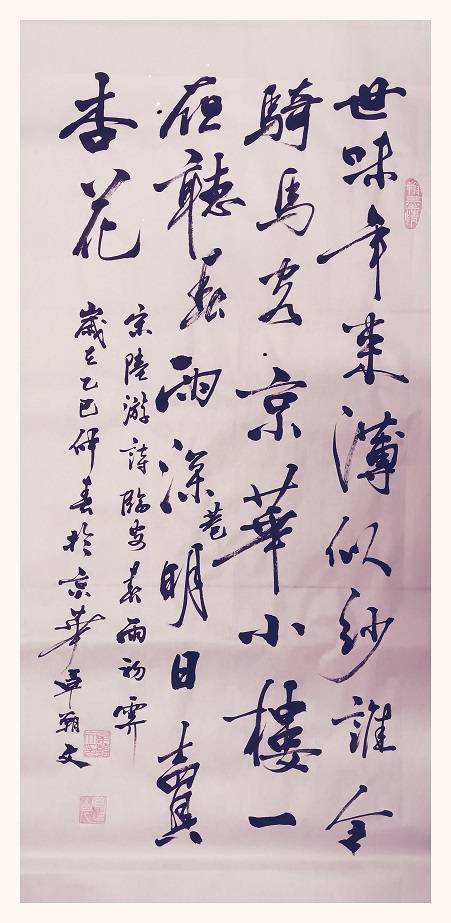 世味年来薄似紗誰令
騎馬客京華小樓一
聽春雨深巷明日賣
杏花
宋陸游詩臨安春雨初霽
歲在乙巳仲春於京華
文